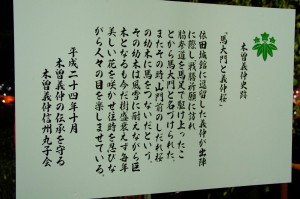 木曽義仲史跡
「馬大門と義仲桜」
依田城館に逗留した義仲が出陣
に際し戦勝祈願に訪れ
脇参道を馬足で駆け上ったこ
とから馬大門と名づけられた。
またその時山門前のしだれ桜
の幼木に馬をつないだという。
その幼木は風雪に耐えながら巨
木となるも今だ樹盛衰えず毎年
美しい花を咲かせ往時を忍びな
がら人々の目を楽しませている。
平成二十四年十月
木曽義仲の伝承を守る
木曽義仲信州丸子会